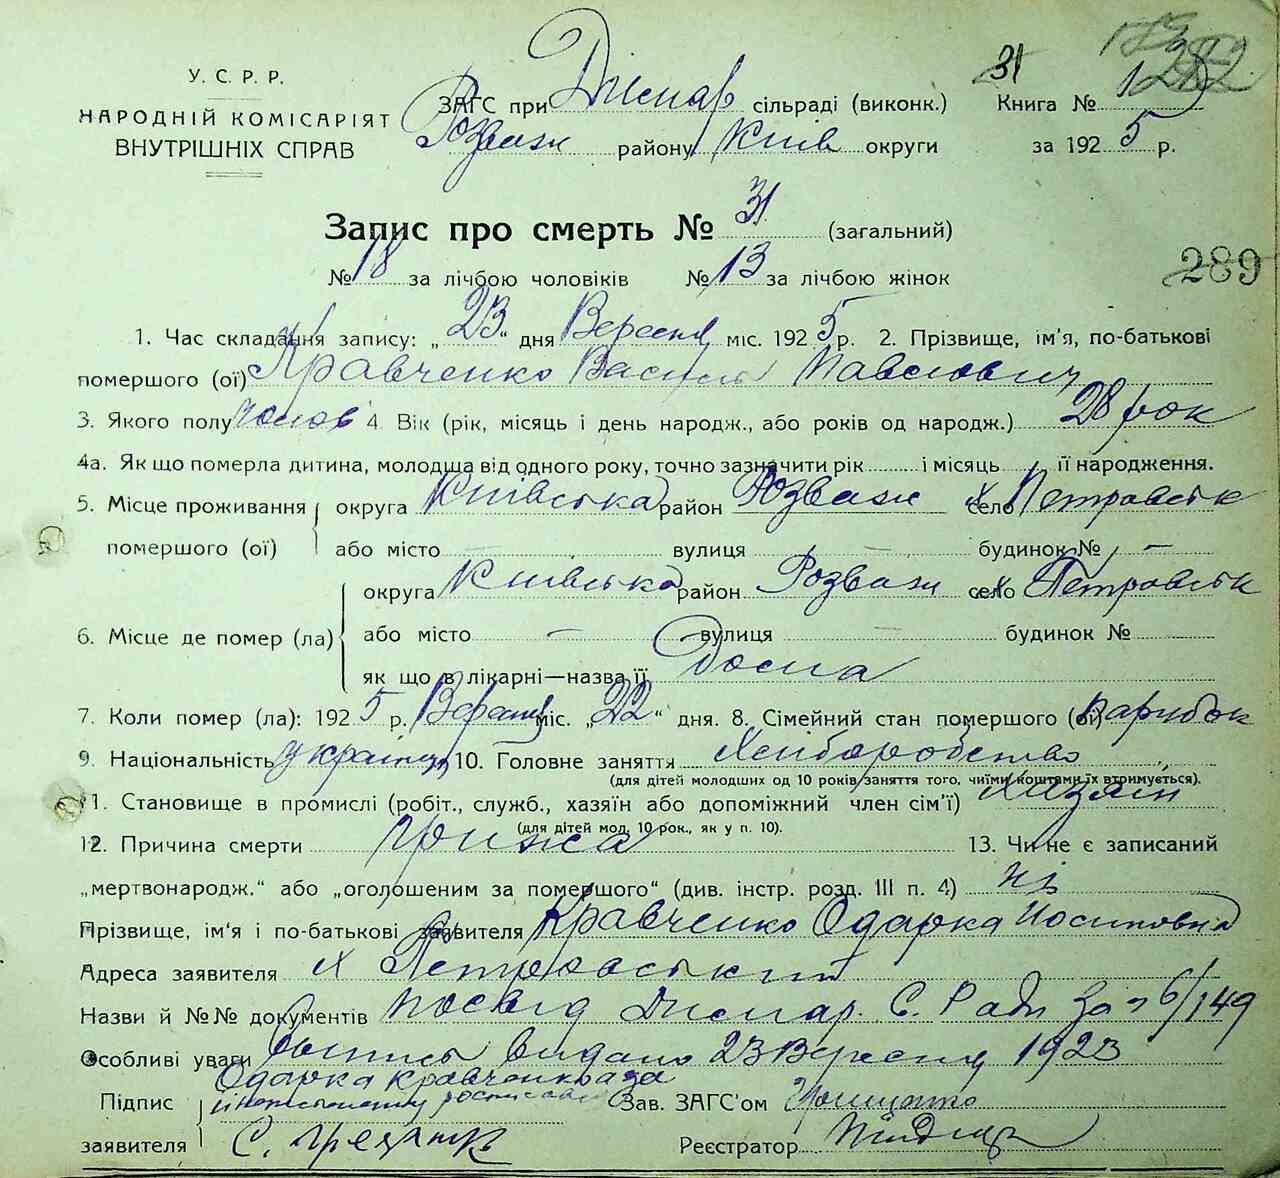 У. С. Р. Р.
НАРОДНІЙ КОМІСАРІЯТ
ВНУТРІШНІХ СПРАВ
31
ЗАГС при сільраді (виконк.) Книга №
Розваж району Київ округи за 1925 р.
Запис про смерть № 31 (загальний)
№ 18 за лічбою чоловіків № 13 за лічбою жінок
289
1. Час складання запису: „23“ дня Вересня міс. 1925 р. 2. Прізвище, ім'я, по-батькові
помершого (ої) Кравченко Василь Павлович
3. Якого полу чолов 4. Вік (рік, місяць і день народж., або років од народж.) 28 рок
4а. Як що померла дитина, молодша від одного року, точно зазначити рік і місяць її народження.
5. Місце проживання округа Київська район Розваж село х Петровськ
помершого (ої) або місто — вулиця — будинок № —
округа Київська район Розваж село х Петровськ
6. Місце де помер (ла) або місто — вулиця — будинок №
як що в лікарні—назва її Дома
7. Коли помер (ла): 1925 р. Вересня міс. „22“ дня. 8. Сімейний стан помершого (ої) Парубок
9. Національність українец 10. Головне заняття Хліборобство
(для дітей молодших од 10 років заняття того, чиїми коштами їх втримується).
11. Становище в промислі (робіт., служб., хазяїн або допоміжний член сім'ї) хазяїн
(для дітей мол. 10 рок., як у п. 10).
12. Причина смерти Грижа 13. Чи не є записаний
„мертвонародж.“ або „оголошеним за помершого“ (див. інстр. розд. III п. 4) ні
Прізвище, ім'я і по-батькові заявителя Кравченко Одарка Иосиповна
Адреса заявителя х Петровський
Назви й №№ документів посвід С. Ради за № 6/149
Особливі уваги Выпись видано 23 Вересня 1923
Одарка Кравченкова а за
Підпис неписьменну росписався Зав. ЗАГС'ом
заявителя С. Реєстратор